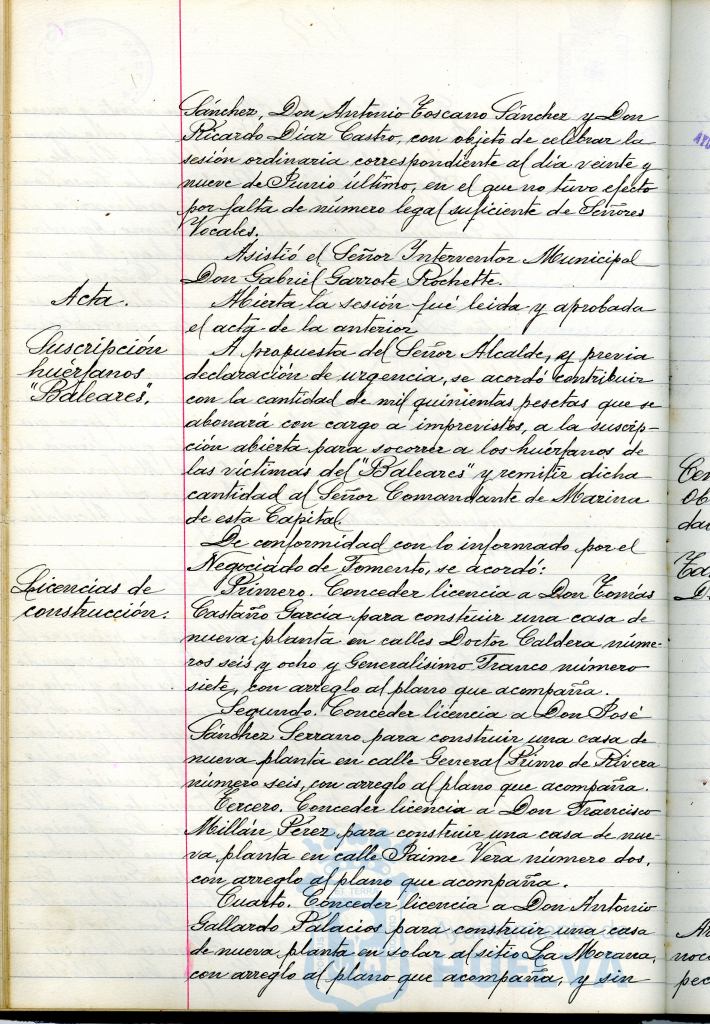 Sánchez, Don Antonio Toscano Sánchez y Don
Ricardo Díaz Castro, con objeto de celebrar la
sesión ordinaria correspondiente al día veinte y
nueve de Junio último, en el que no tuvo efecto
por falta de número legal suficiente de Señores
Vocales.
Asistió el Señor Interventor Municipal
Don Gabriel Garrote Rochette.
Acta.
Abierta la sesión fué leida y aprobada
el acta de la anterior
Suscripción
huérfanos
"Baleares".
A propuesta del Señor Alcalde, y previa
declaración de urgencia, se acordó contribuir
con la cantidad de mil quinientas pesetas que se
abonará con cargo a imprevistos, a la suscrip-
ción abierta para socorrer a los huérfanos de
las víctimas del "Baleares" y remitir dicha
cantidad al Señor Comandante de Marina
de esta Capital.
De conformidad con lo informado por el
Negociado de Fomento, se acordó:
Licencias de
construcción.
Primero. Conceder licencia a Don Tomás
Castaño García para construir una casa de
nueva planta en calles Doctor Caldera núme-
ros seis y ocho y Generalísimo Franco número
siete, con arreglo al plano que acompaña.
Segundo. Conceder licencia a Don José
Sánchez Serrano para construir una casa de
nueva planta en calle General Primo de Rivera
número seis, con arreglo al plano que acompaña.
Tercero. Conceder licencia a Don Francisco
Millán Pérez para construir una casa de nue-
va planta en calle Jaime Vera número dos,
con arreglo al plano que acompaña.
Cuarto. Conceder licencia a Don Antonio
Gallardo Palacios para construir una casa
de nueva planta en solar al sitio La Morana,
con arreglo al plano que acompaña, y sin
HUELVA